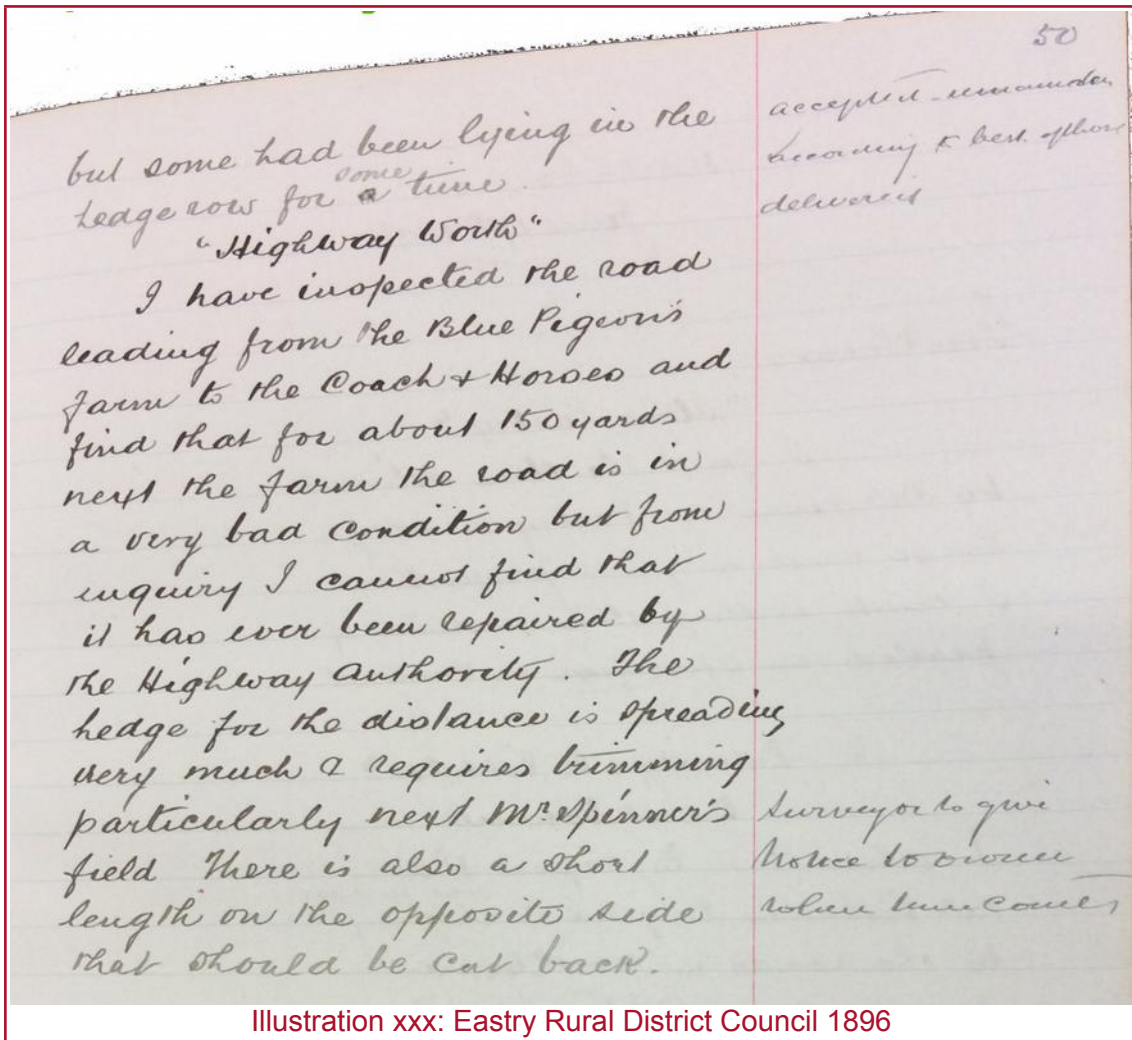 50
but some had been lying in the
hedge row for some time.
"Highway Worth"
I have inspected the road
leading from the Blue Pigeons
farm to the Coach & Horses and
find that for about 150 yards
next the farm the road is in
a very bad condition but from
enquiry I cannot find that
it has ever been repaired by
the Highway Authority. The
hedge for the distance is spreading
very much & requires trimming
particularly next Mr. Spinner's
field There is also a short
length on the opposite side
that should be cut back.
accepted
according to best
delivered
Surveyor to give
notice to owner
when time comes
Illustration xxx: Eastry Rural District Council 1896